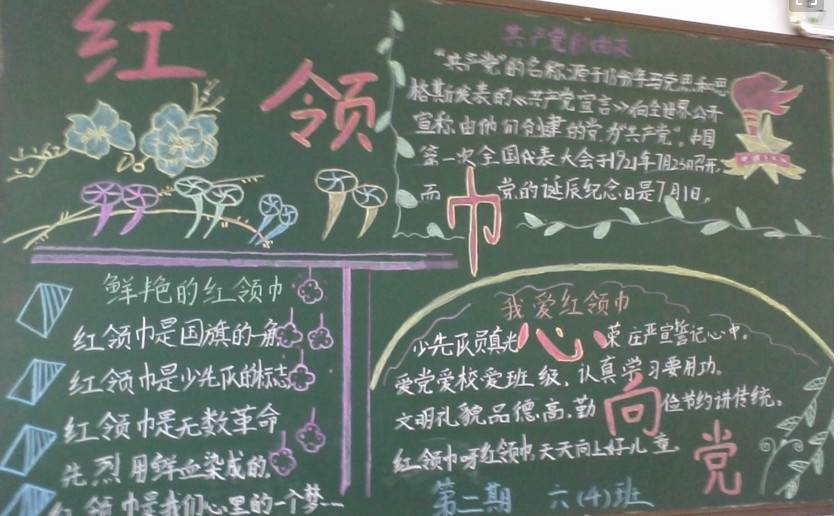 红领巾心向党
共产党的由来
“共产党”的名称,源于1848年马克思和恩
格斯发表的《共产党宣言》向全世界公开
宣称,由他们创建的党为“共产党”。中国
第一次全国代表大会于1921年7月23日召开,
而党的诞辰纪念日是7月1日。
鲜艳的红领巾
红领巾是国旗的一角
红领巾是少先队的标志
红领巾是无数革命
先烈用鲜血染成的
红领巾是我们心里的一个梦...
我爱红领巾
少先队员真光荣庄严宣誓记心中。
爱党爱校爱班级,认真学习要用功。
文明礼貌品德高,勤位节约讲传统。
红领巾呀红领巾,天天向上好儿童。
第二期 六(4)班